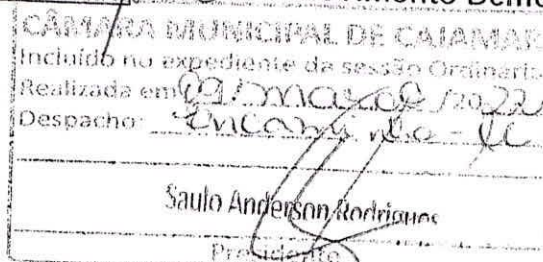 CÂMARA MUNICIPAL DE CAJAMAR
Incluído no expediente da sessão Ordinária
Realizada em 09/março/2022
Despacho: Encaminha-se
Saulo Anderson Rodrigues
Presidente